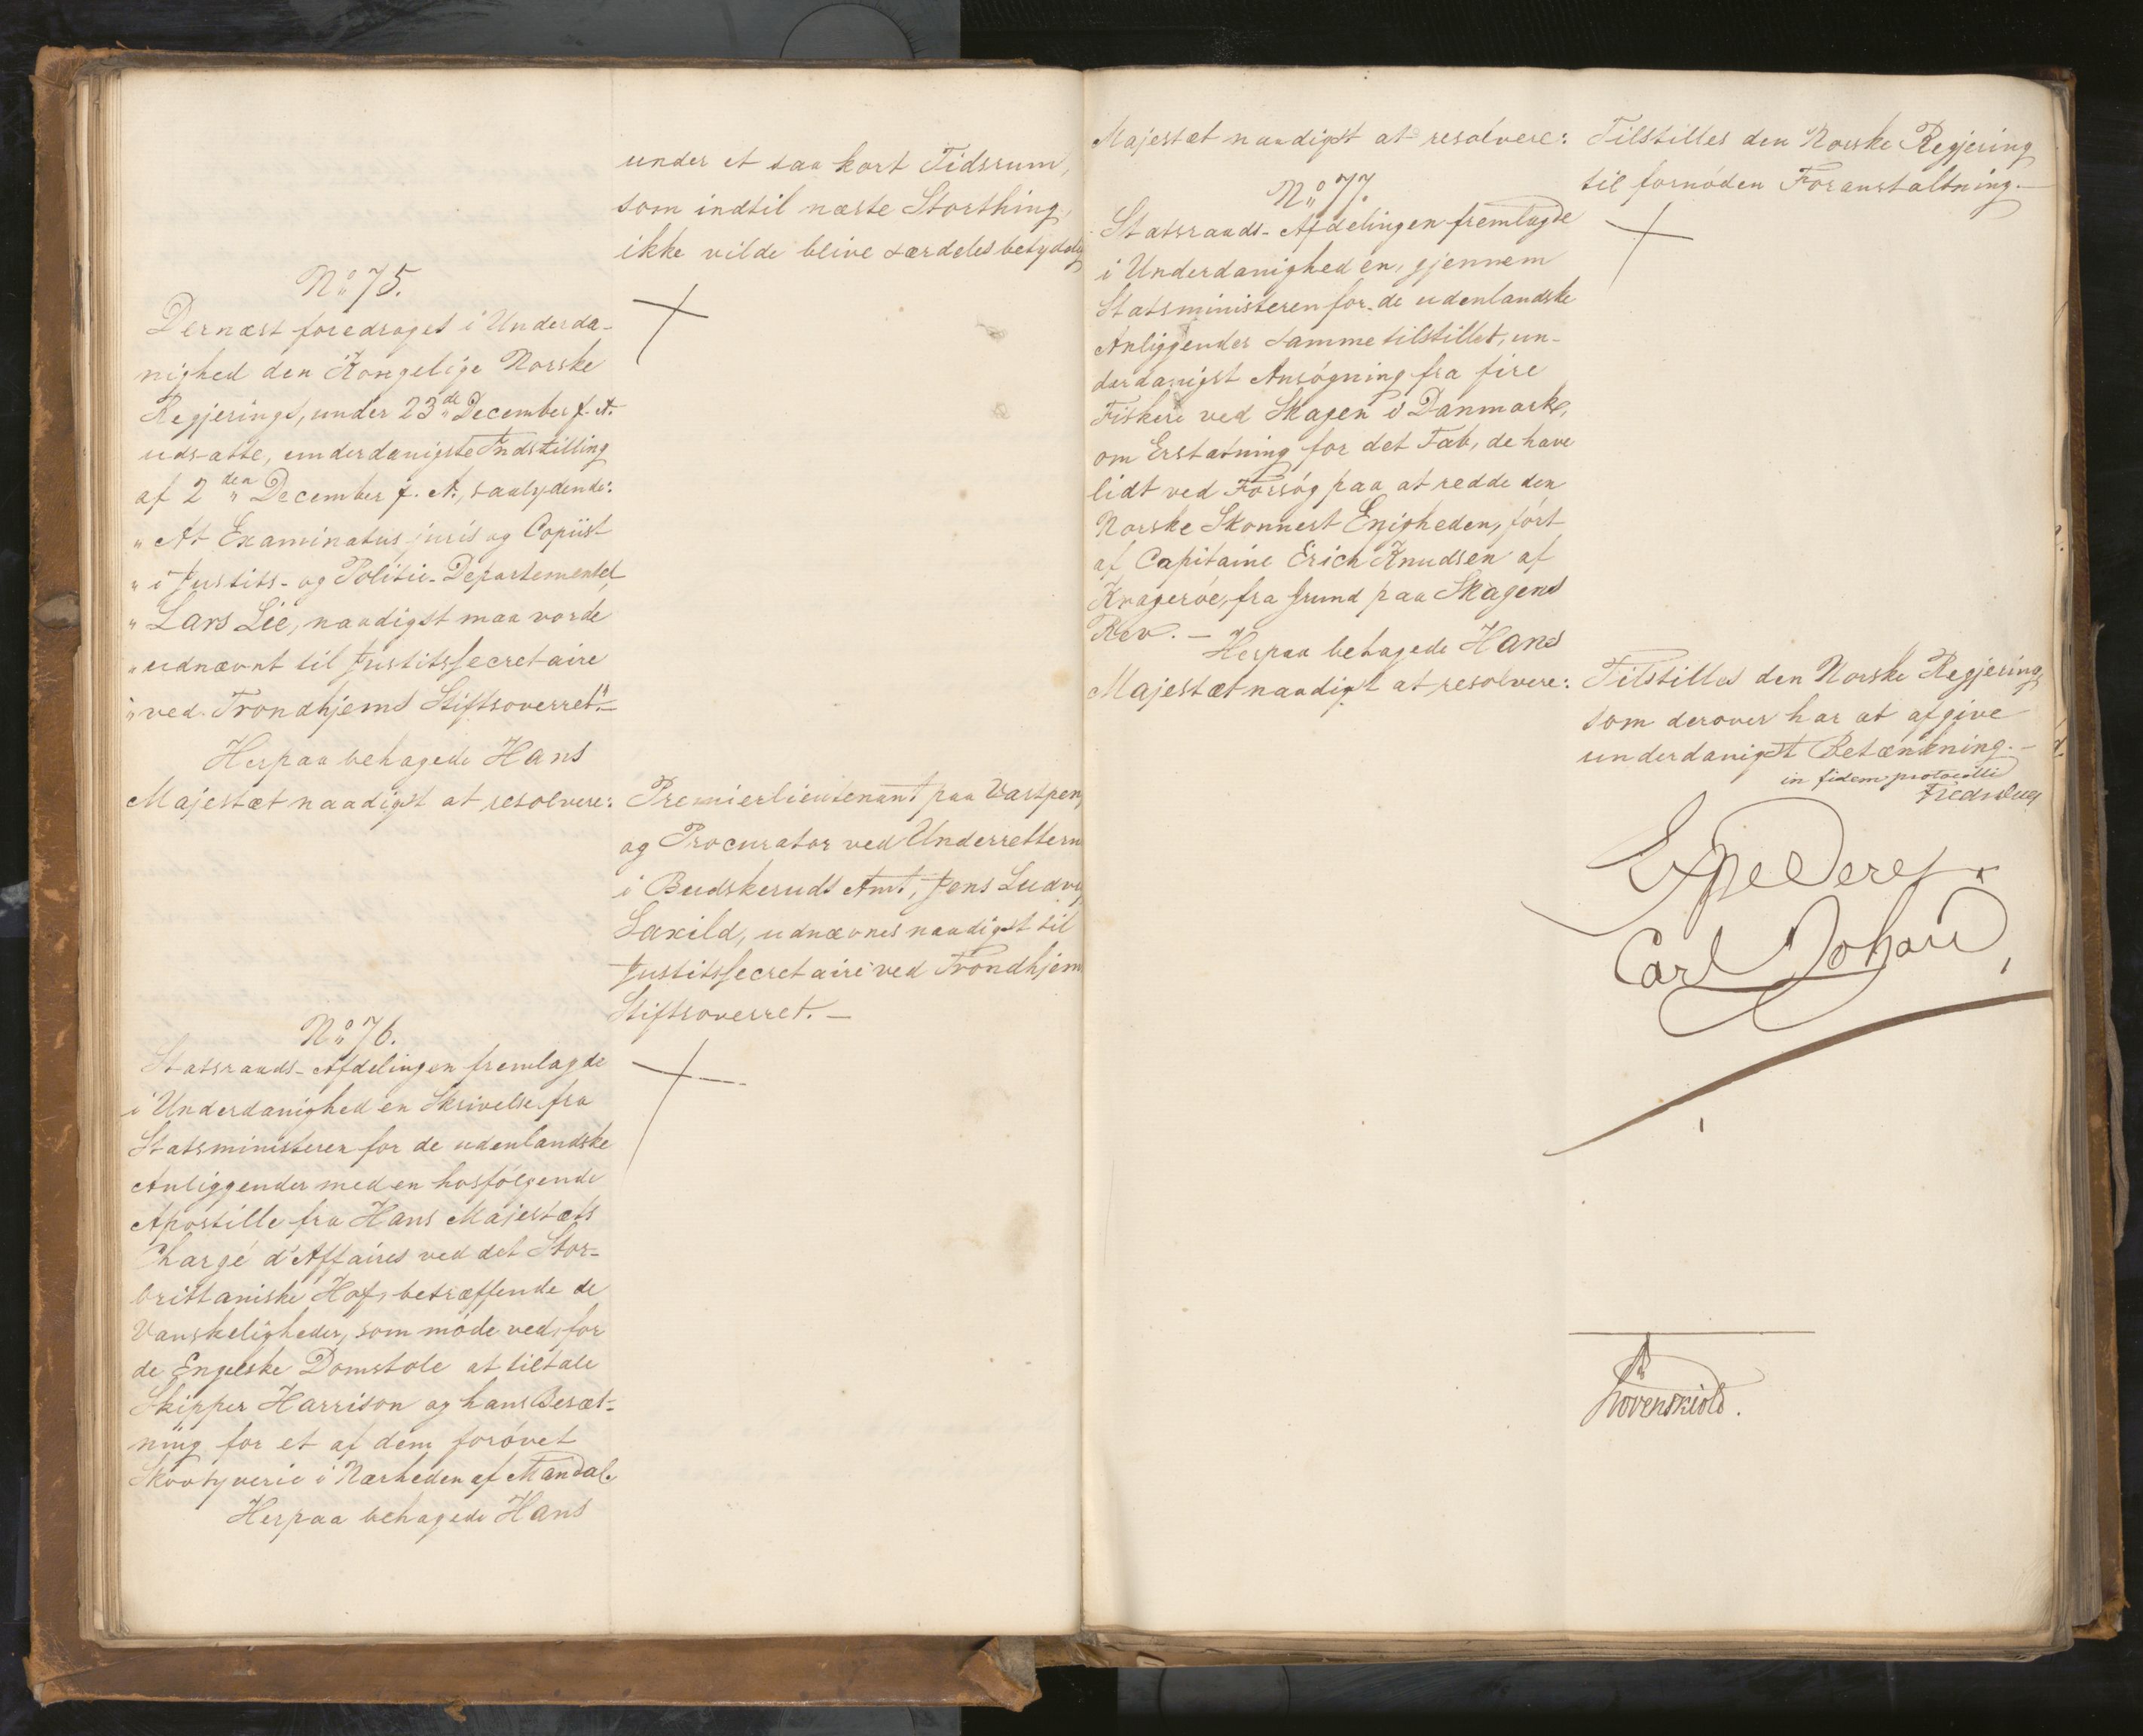 under et saa kort Tidsrum,
som indtil næste Storthing,
ikke vilde blive særdeles betydelig
No 75.
Dernæst foredroges i Underda-
nighed den Kongelige Norske
Regjerings, under 23de December f. A.
udsatte, underdanigste Indstilling
af 2den December f. A., saalydende:
"At Examinatus juris og Copiist
"i Justits- og Politie-Departementet,
"Lars Lie, naadigst maa vorde
"udnævnt til Justitssecretaire
"ved Trondhjems Stiftsoverret".-
Herpaa behagede Hans
Majestæt naadigst at resolvere:
Premierlieutenant paa Vartpen,
og Procurator ved Underretterne
i Budskeruds Amt, Jens Ludvig
Saxild, udnævnes naadigst til
Justitssecretaire ved Trondhjems
Stiftsoverret. -
No 76.
Statsraads-Afdelingen fremlagde
i Underdanighed en Skrivelse fra
Statsministeren for de udenlandske
Anliggender med en hosfölgende
Apostille fra Hans Majestæts
Chargé d'Affaires ved det Stor-
brittaniske Hof, betræffende de
Vanskeligheder, som möde ved, for
de Engelske Domstole at tiltale
Skipper Harrison og hans Besæt-
ning for et af dem forövet
Skovtyverie i Nærheden af Mandal.
Herpaa behagede Hans
Majestæt naadigst at resolvere:
Tilstilles den Norske Regjering
til fornöden Foranstaltning. -
No 77.
Statsraads-Afdelingen fremlagde
i Underdanighed en, gjennem
Statsministeren for de udenlandske
Anliggender samme tilstillet, un-
derdanigst Ansögning fra fire
Fiskere ved Skagen i Danmark,
om Erstatning for det Tab, de have
lidt ved Forsög paa at redde den
Norske Skonnert Enigheden, fört
af Capitaine Erich Knudsen af
Kragerøe, fra Grund paa Skagens
Rev. -
Herpaa behagede Hans
Majestæt naadigst at resolvere:
Tilstilles den Norske Regjering,
som derover har at afgive
underdanigst Betænkning. -
in fidem protocolli
Expederes.
Carl Johan
Løvenskiold.